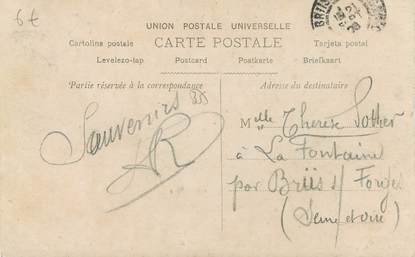 6€
UNION POSTALE UNIVERSELLE
CARTE POSTALE
Cartolina postale
Tarjeta postal
Levelezo-lap
Postcard
Postkarte
Briefkaart
Partie réservée à la correspondance
Adresse du destinataire
Souvenirs
AR
Melle Thérèse Pothier
à La Fontaine
par Briis s/ Forges
(Seine et Oise)